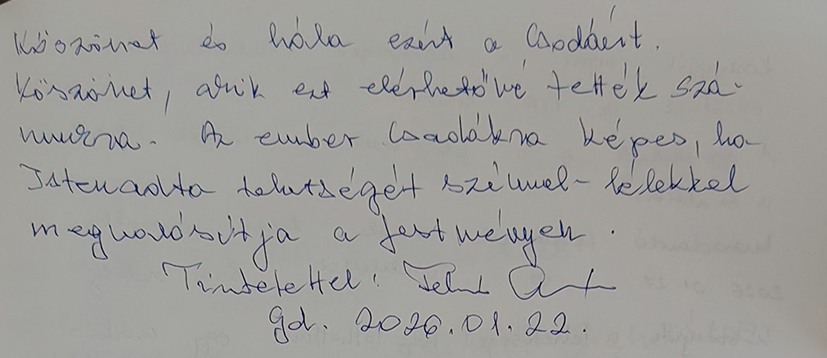 Köszönet és hála ezért a Csodáért.
Köszönet, akik ezt elérhetővé tették szá-
munkra. Az ember Csodákra képes, ha
Istenadta tehetségét szívvel-lélekkel
megvalósítja a festményen.
Tisztelettel:
gd. 2026.01.22.